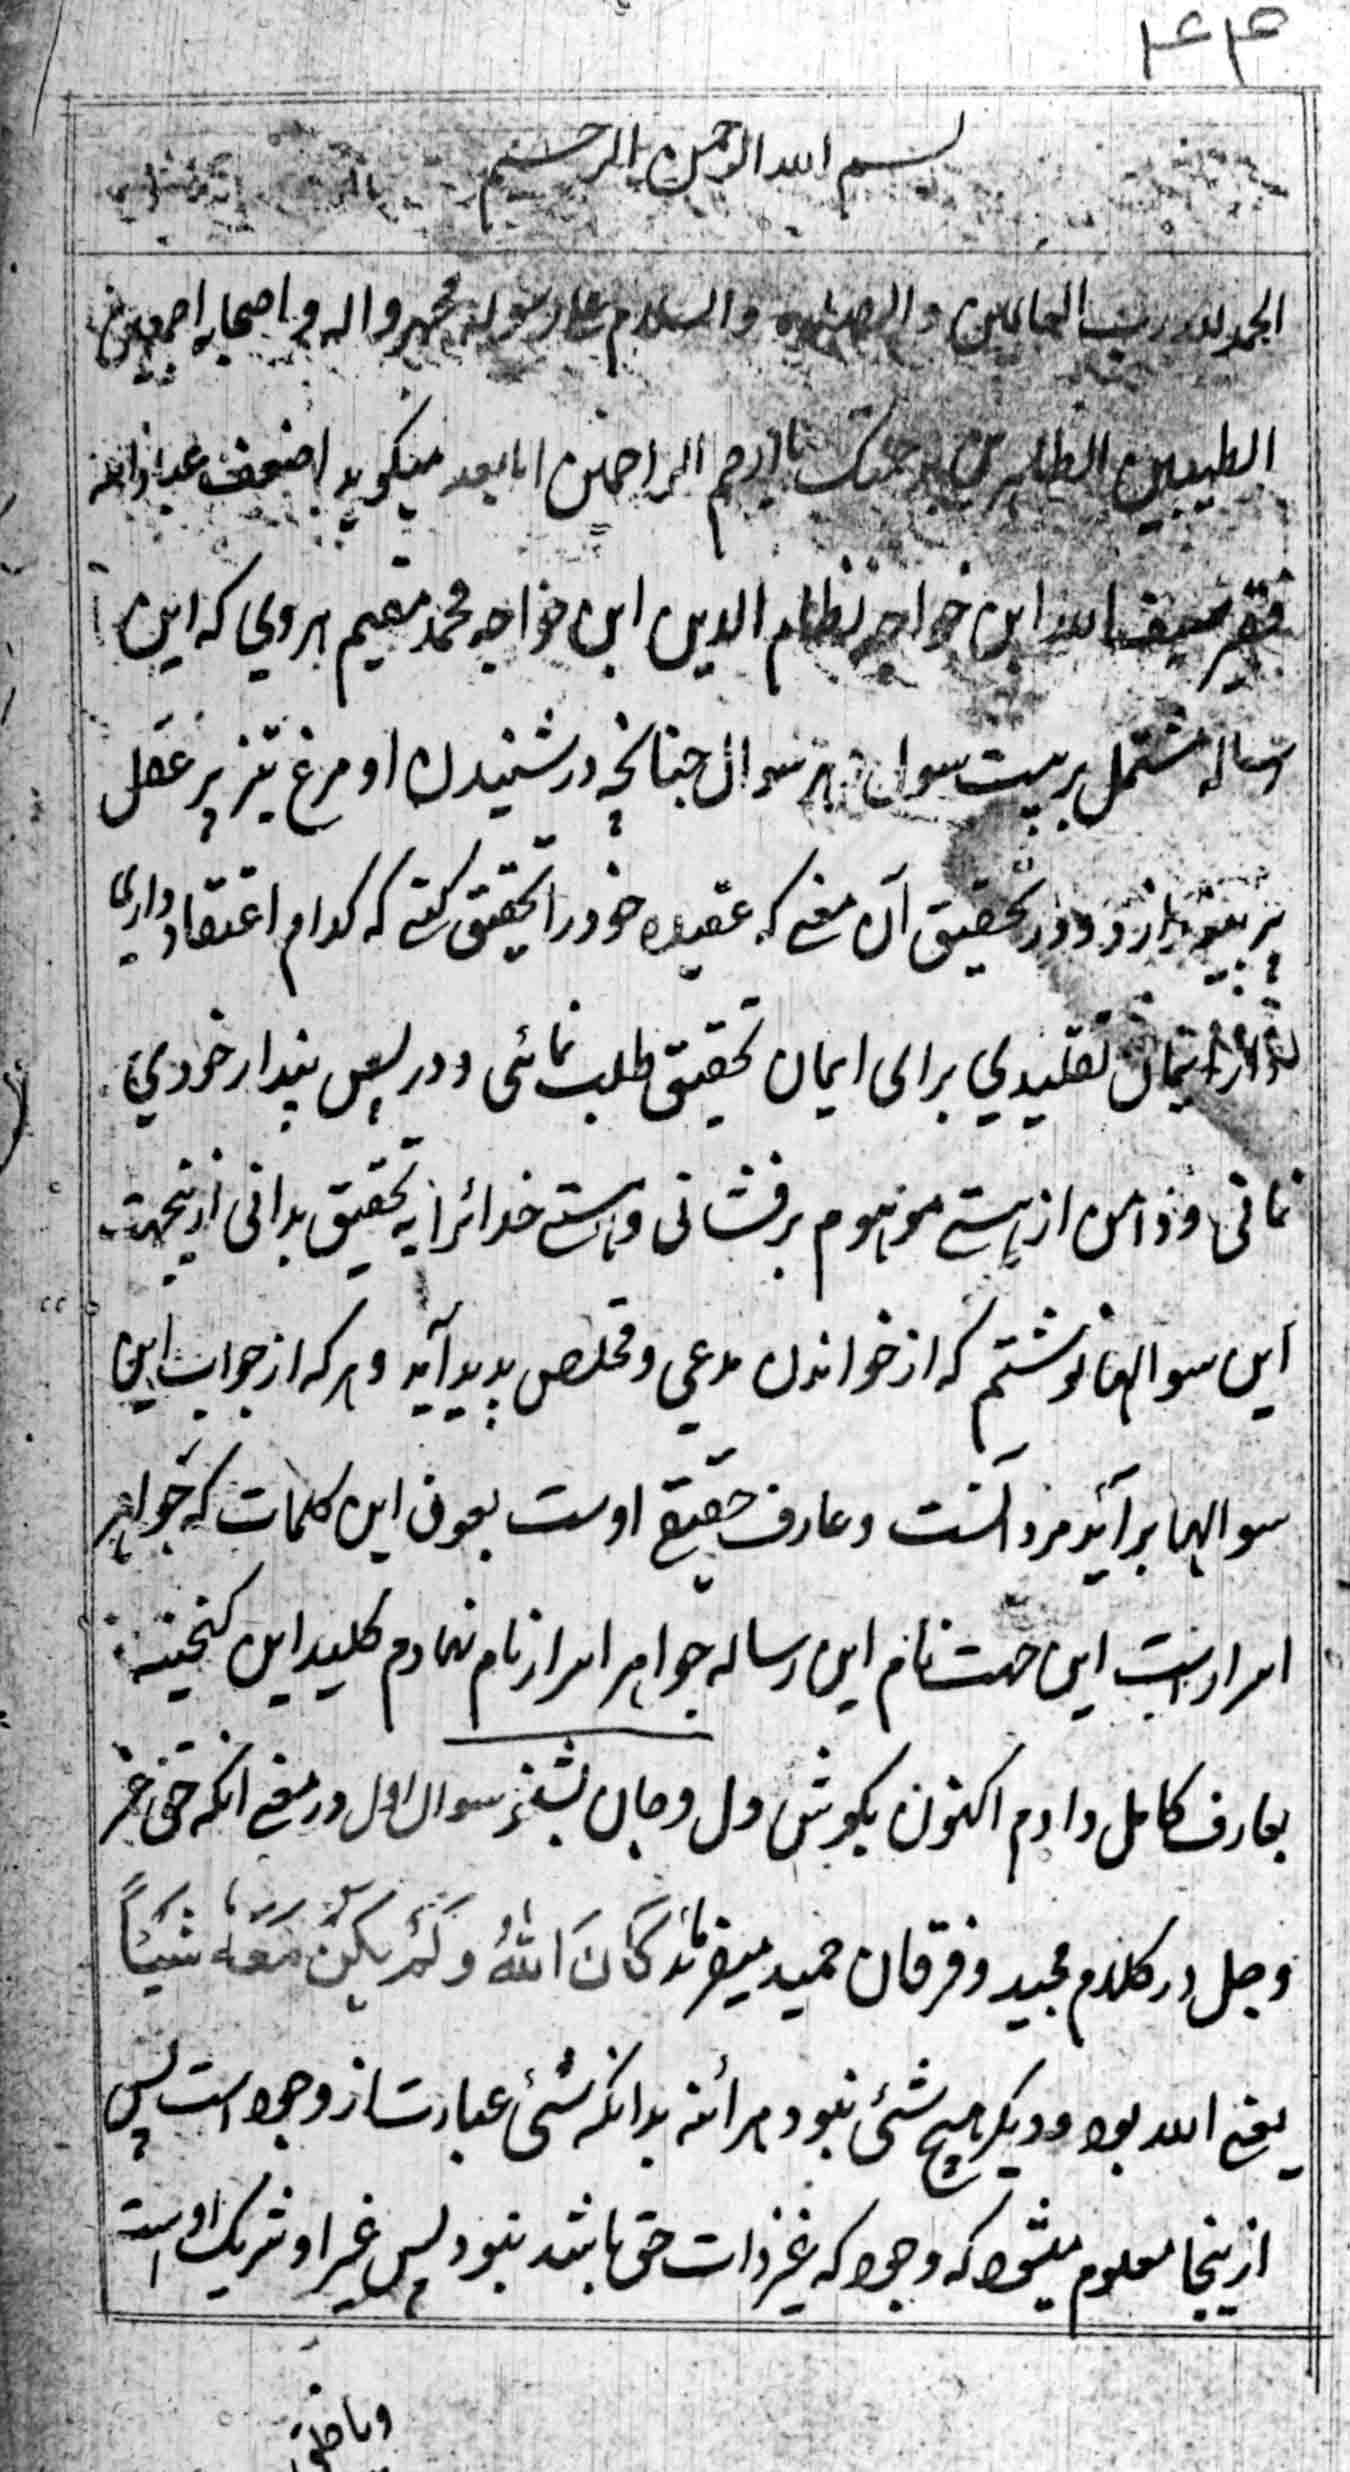 ۴۴۳
بسم الله الرحمن الرحیم
الحمد لله رب العالمین والصلوة والسلام علی رسوله محمد واله واصحابه اجمعین
الطیبین الطاهرین برحمتک یا ارحم الراحمین اما بعد میکوید اضعف عباد الله
فقیر ابن خواجه نظام الدین ابن خواجه محمد مقیم هروی که این
رساله مشتمل بر بیست سوال هر سوال چنانچه در شنیدن او مرغ تیز پر عقل
پر و در تحقیق آن معنے که عقیده خود را تحقیق کنے که کدام اعتقاد داری تا
از ایمان تقلیدی برای ایمان تحقیقی طلب نمائی و در پس پندار خودی
نمانی و دامن از هستے موهوم برفشانی و هستے خدائرا به تحقیق بدانی ازینجهت
این سوالها نوشتم که از خواندن مدعی و مخلص پدید آید و هر که از جواب این
سوالها برآید مرد آنست و عارف حقیقے اوست بعون این کلمات که جواهر
اسرار است این جهت نام این رساله جواهر اسرار نام نهادم کلید این کنجینه
بعارف کامل دادم اکنون بکوش دل و جان بشنو سوال اول در معنے انکه حق عز
وجل در کلام مجید و فرقان حمید میفرماید کَانَ اللهُ وَلَمْ یَکُنْ مَعَهُ شَیْئاً
یعنے الله بود و دیکر هیچ شئی نبود هر آئنه بدانکه شئی عبارت از وجود است پس
ازینجا معلوم میشود که وجود که غیر ذات حق باشد نبود پس غیر او شریک اوست